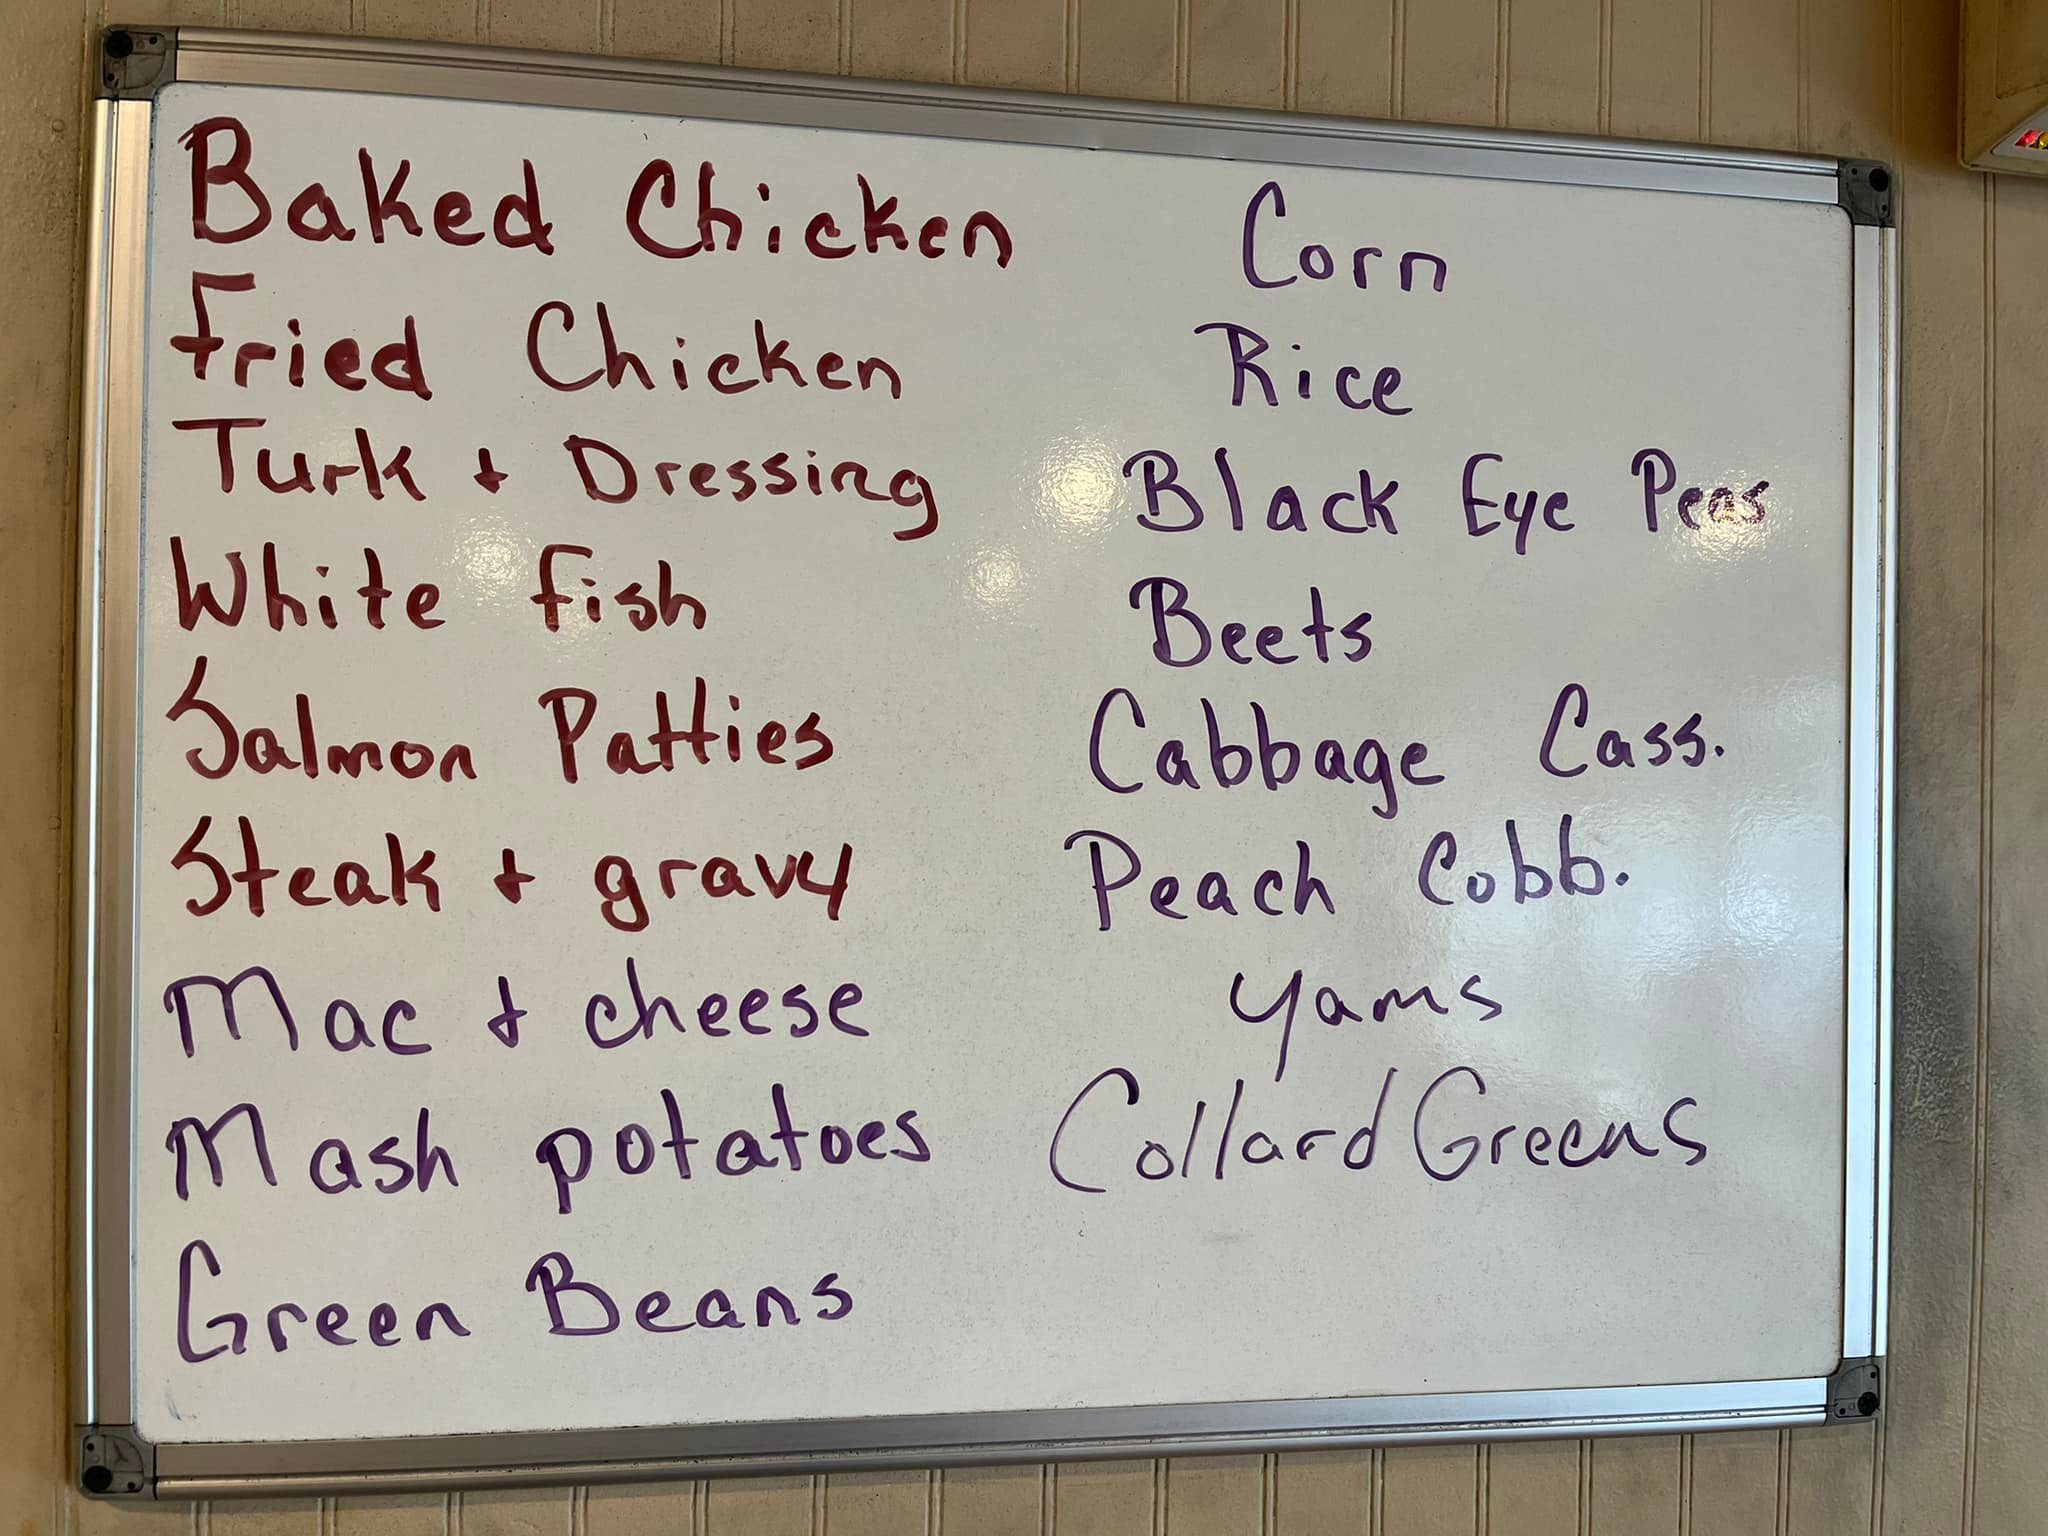 Baked Chicken
Fried Chicken
Turk + Dressing
White fish
Salmon Patties
Steak + gravy
Mac + cheese
Mash potatoes
Green Beans
Corn
Rice
Black Eye Peas
Beets
Cabbage Cass.
Peach Cobb.
Yams
Collard Greens